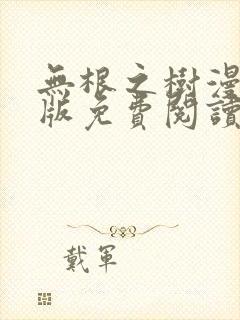 無根之樹漫
版免費閱讀
戴軍